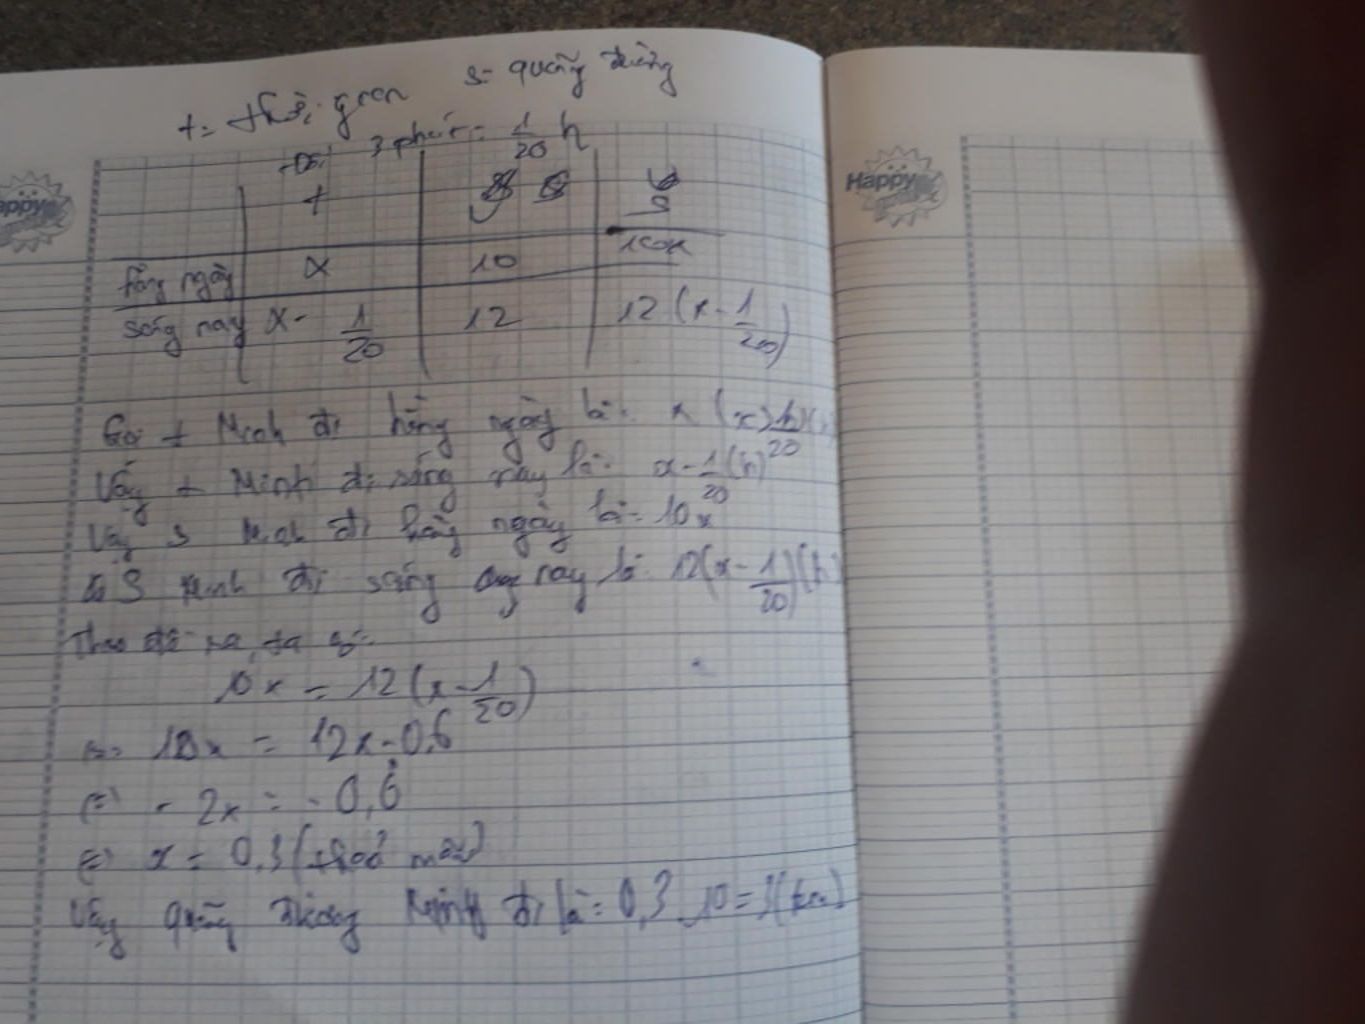 t = thời gian s = quãng đường
Đổi 3 phút = 1/20 h
t
S
hằng ngày x 10 10x
sáng nay x - 1/20 12 12 (x - 1/20)
Happy
Gọi t Minh đi hằng ngày là: x
Vậy t Minh đi sáng nay là: x - 1/20 (h)
Vậy S Minh đi hằng ngày là: 10x
S Minh đi sáng nay là: 12(x - 1/20)(h)
Theo đề ra, ta có:
10x = 12(x - 1/20)
10x = 12x - 0,6
(=) - 2x = - 0,6
(=) x = 0,3 (thoả mãn)
Vậy quãng đường Minh đi là: 0,3 . 10 = 3 (km)